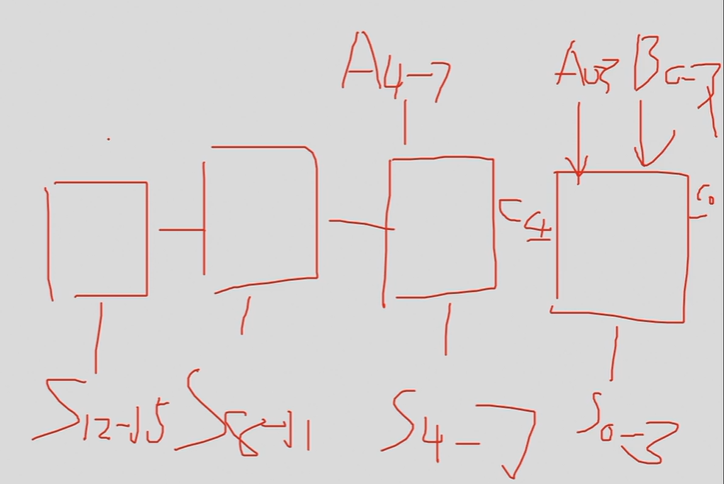 A4-7 A0-3 B0-3
C4 C0
S12-15 S8-11 S4-7 S0-3